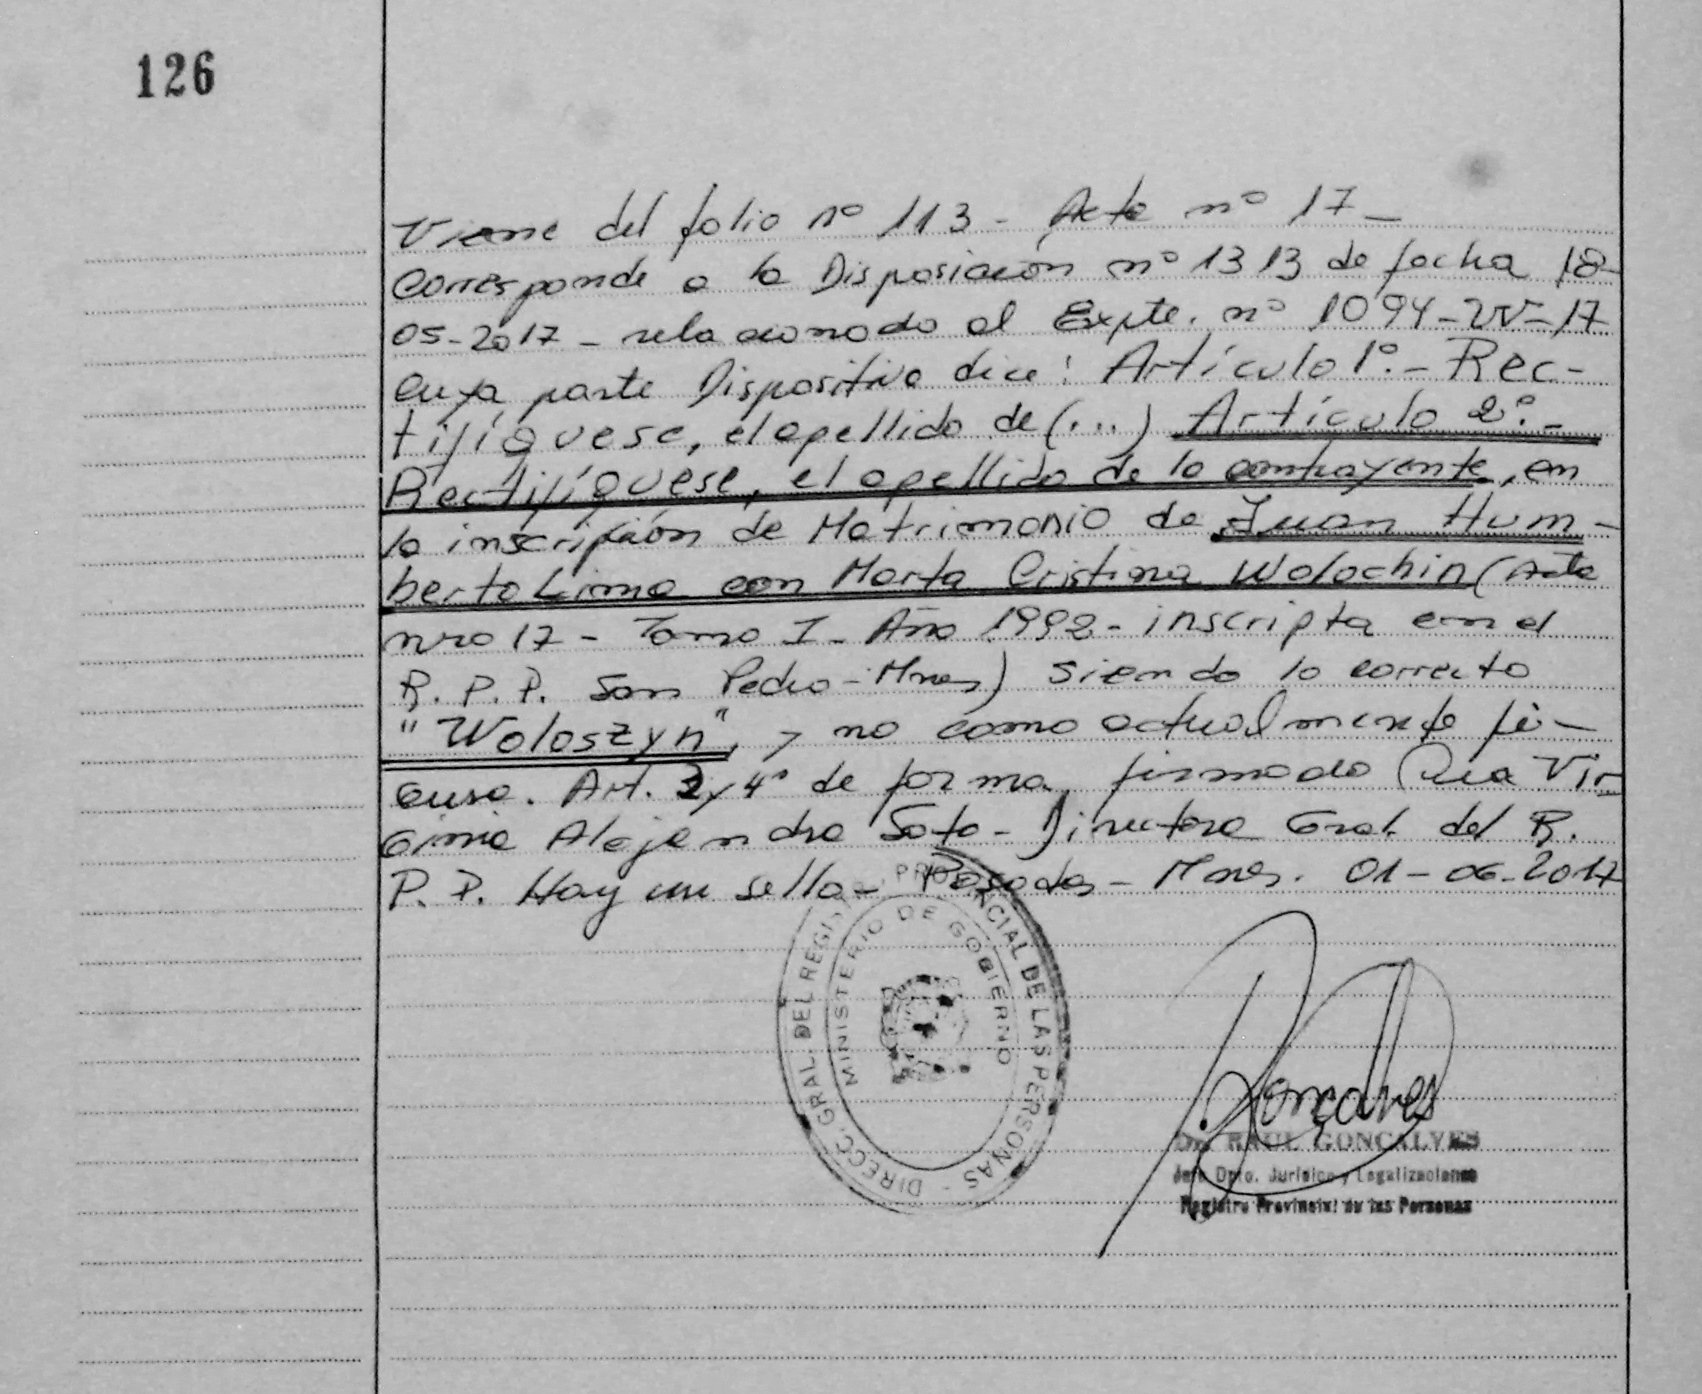 126
Viene del folio nº 113 - Acta nº 17 -
Corresponde a la Disposición nº 1313 de fecha 18-
05-2017 - relacionado al Expte. nº 1094-W-17
cuya parte Dispositiva dice: Artículo 1º.- Rec-
tifíquese, el apellido de (...) Artículo 2º.-
Rectifíquese, el apellido de la contrayente, en
la inscripción de Matrimonio de Juan Hum-
berto Lima con Marta Cristina Wolochin (Acta
nro 17 - Tomo I - Año 1992 - inscripta en el
R. P. P. San Pedro - Mnes) siendo lo correcto
"Woloszyn", y no como actualmente fi-
gura. Art. 3 y 4º de forma, firmado Dra Vir-
ginia Alejandra Soto - Directora Gral. del R.
P. P. Hay un sello - Posadas - Mnes. 01-06-2017
DIRECC. GRAL. DEL REGISTRO PROVINCIAL DE LAS PERSONAS -
MINISTERIO DE GOBIERNO
Gonçalves
Dr. RAUL GONCALVES
Jefe Dpto. Jurídico y Legalizaciones
Registro Provincial de las Personas